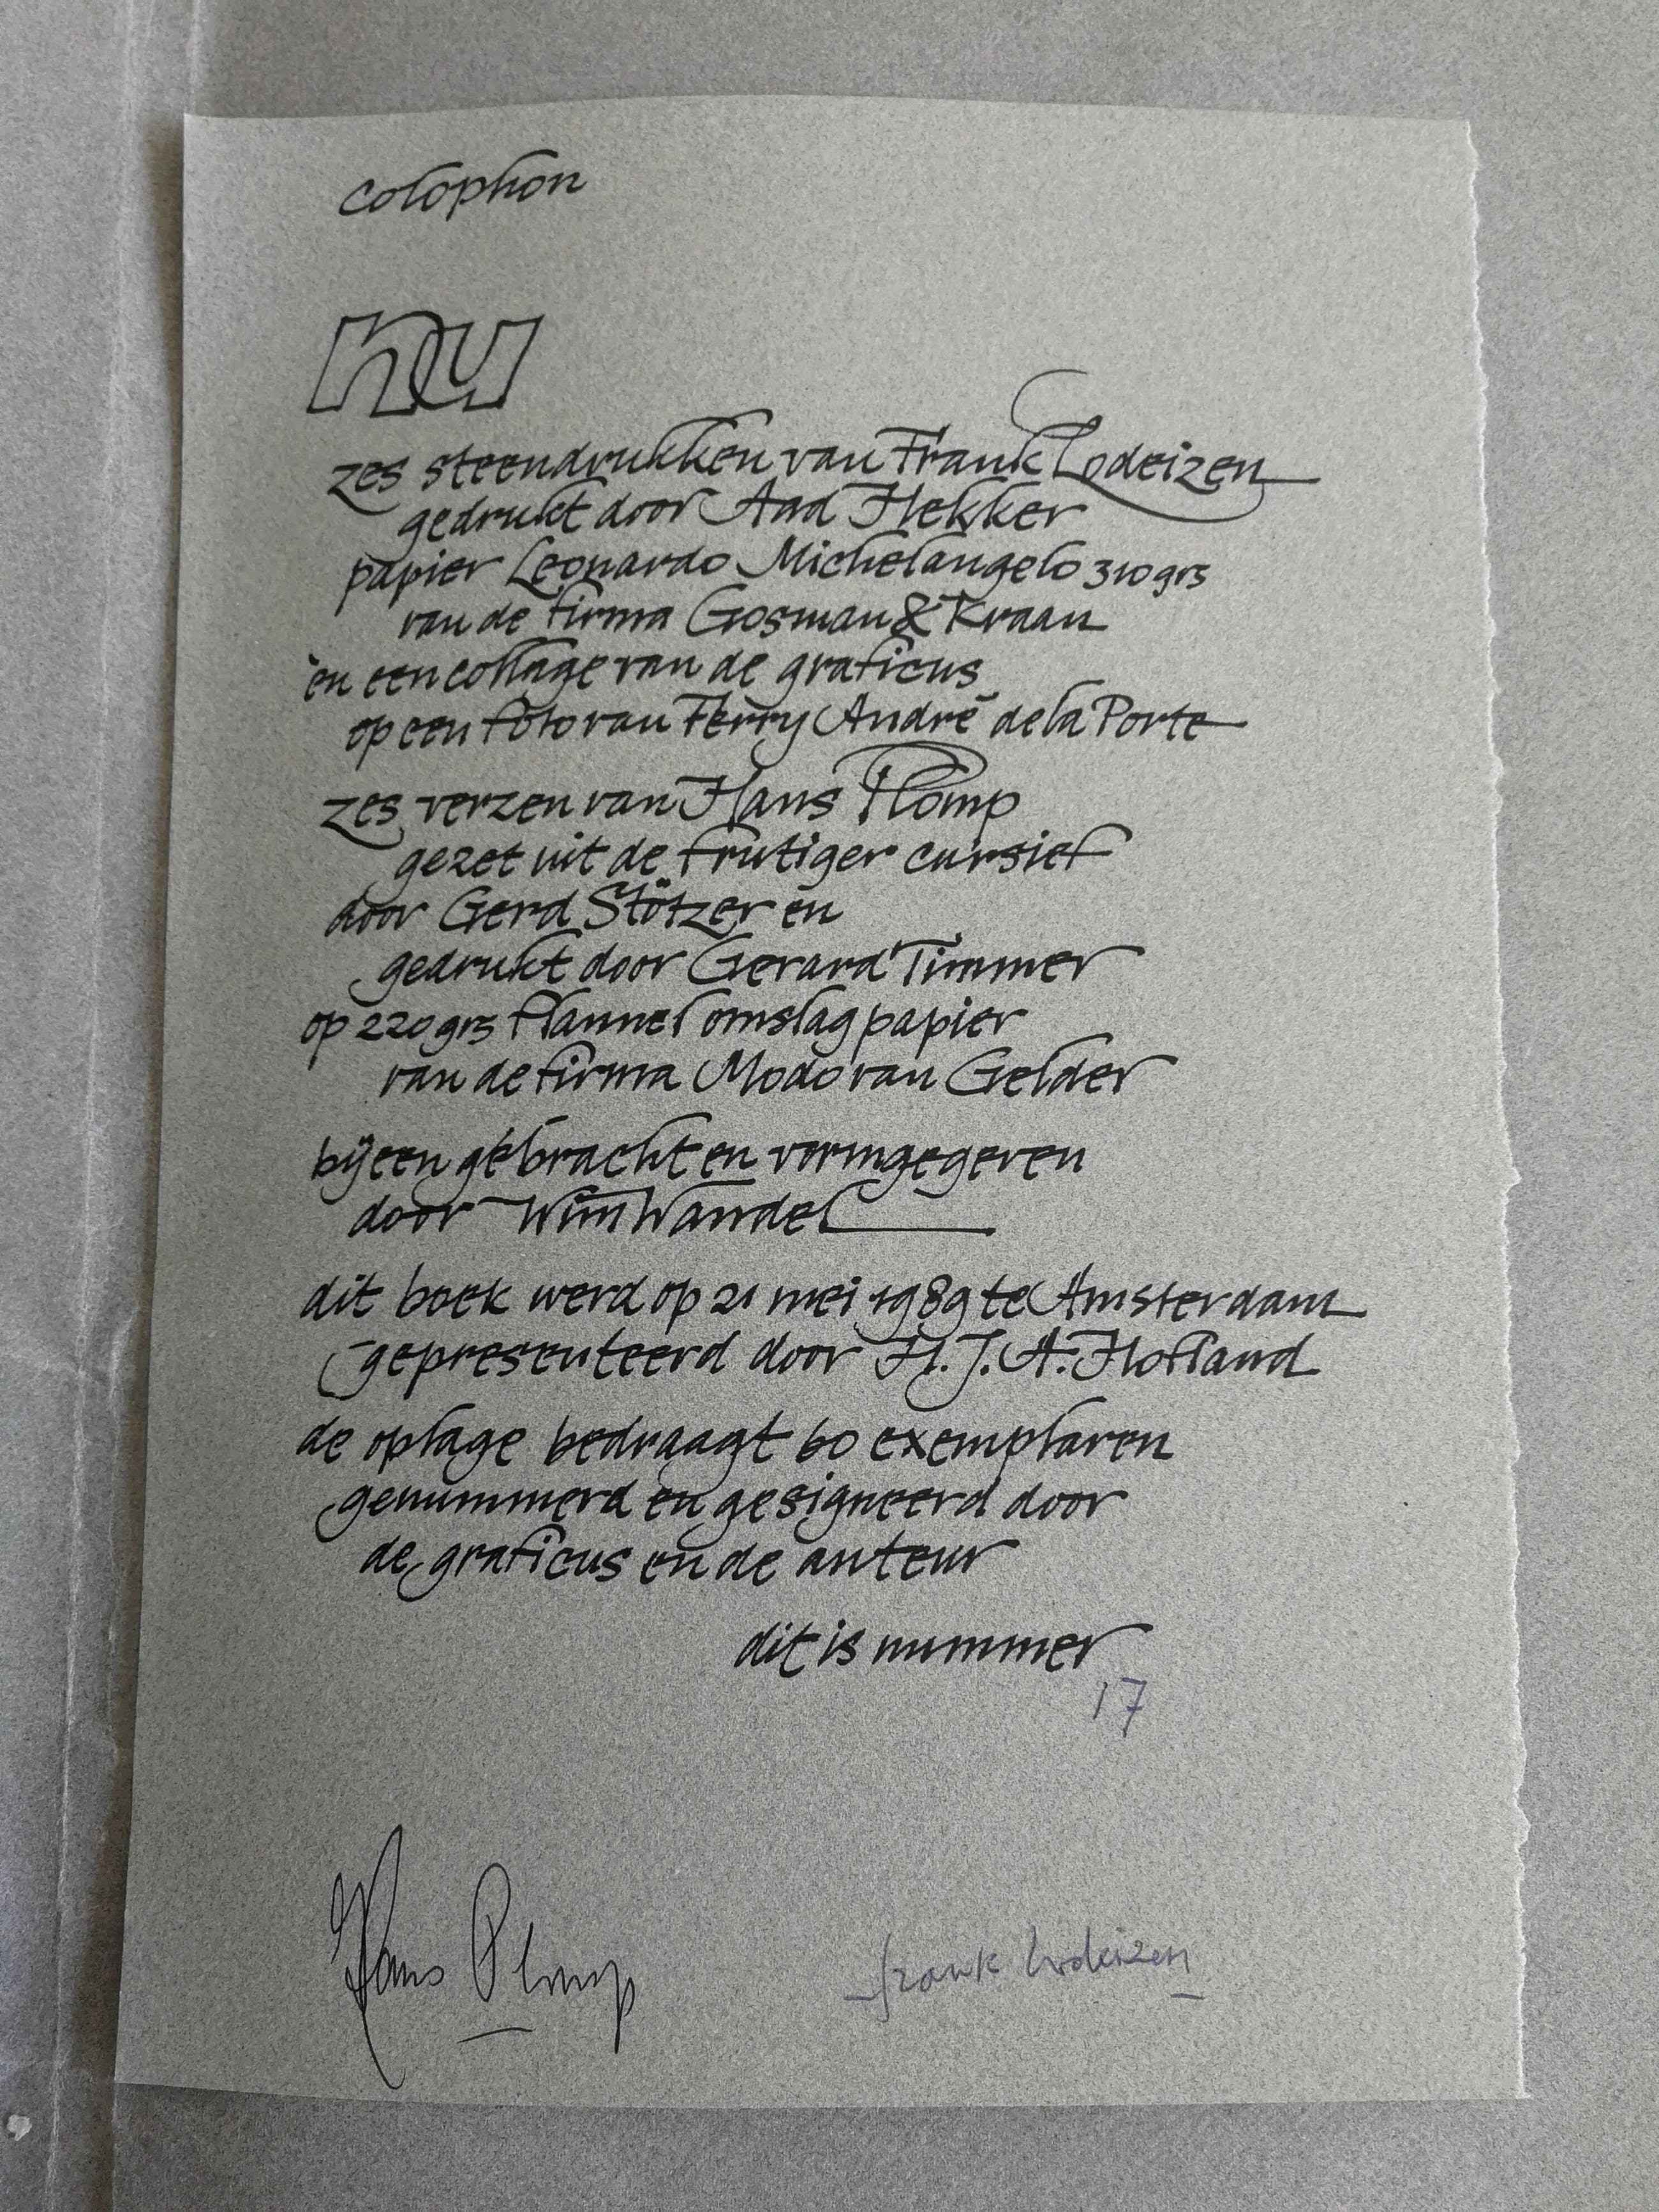 colophon
nu
zes steendrukken van Frank Lodeizen
gedrukt door Aad Hekker
papier Leonardo Michelangelo 310 grs
van de firma Gosman & Kraan
en een collage van de graficus
op een foto van Ferry André de la Porte
zes verzen van Hans Plomp
gezet uit de frutiger cursief
door Gerd Stötzer en
gedrukt door Gerard Timmer
op 220 grs Flannel omslagpapier
van de firma Modo van Gelder
bijeen gebracht en vormgegeven
door Wim Wandel
dit boek werd op 21 mei 1989 te Amsterdam
gepresenteerd door H. J. A. Hofland
de oplage bedraagt 60 exemplaren
genummerd en gesigneerd door
de graficus en de auteur
dit is nummer
17
Hans Plomp frank lodeizen